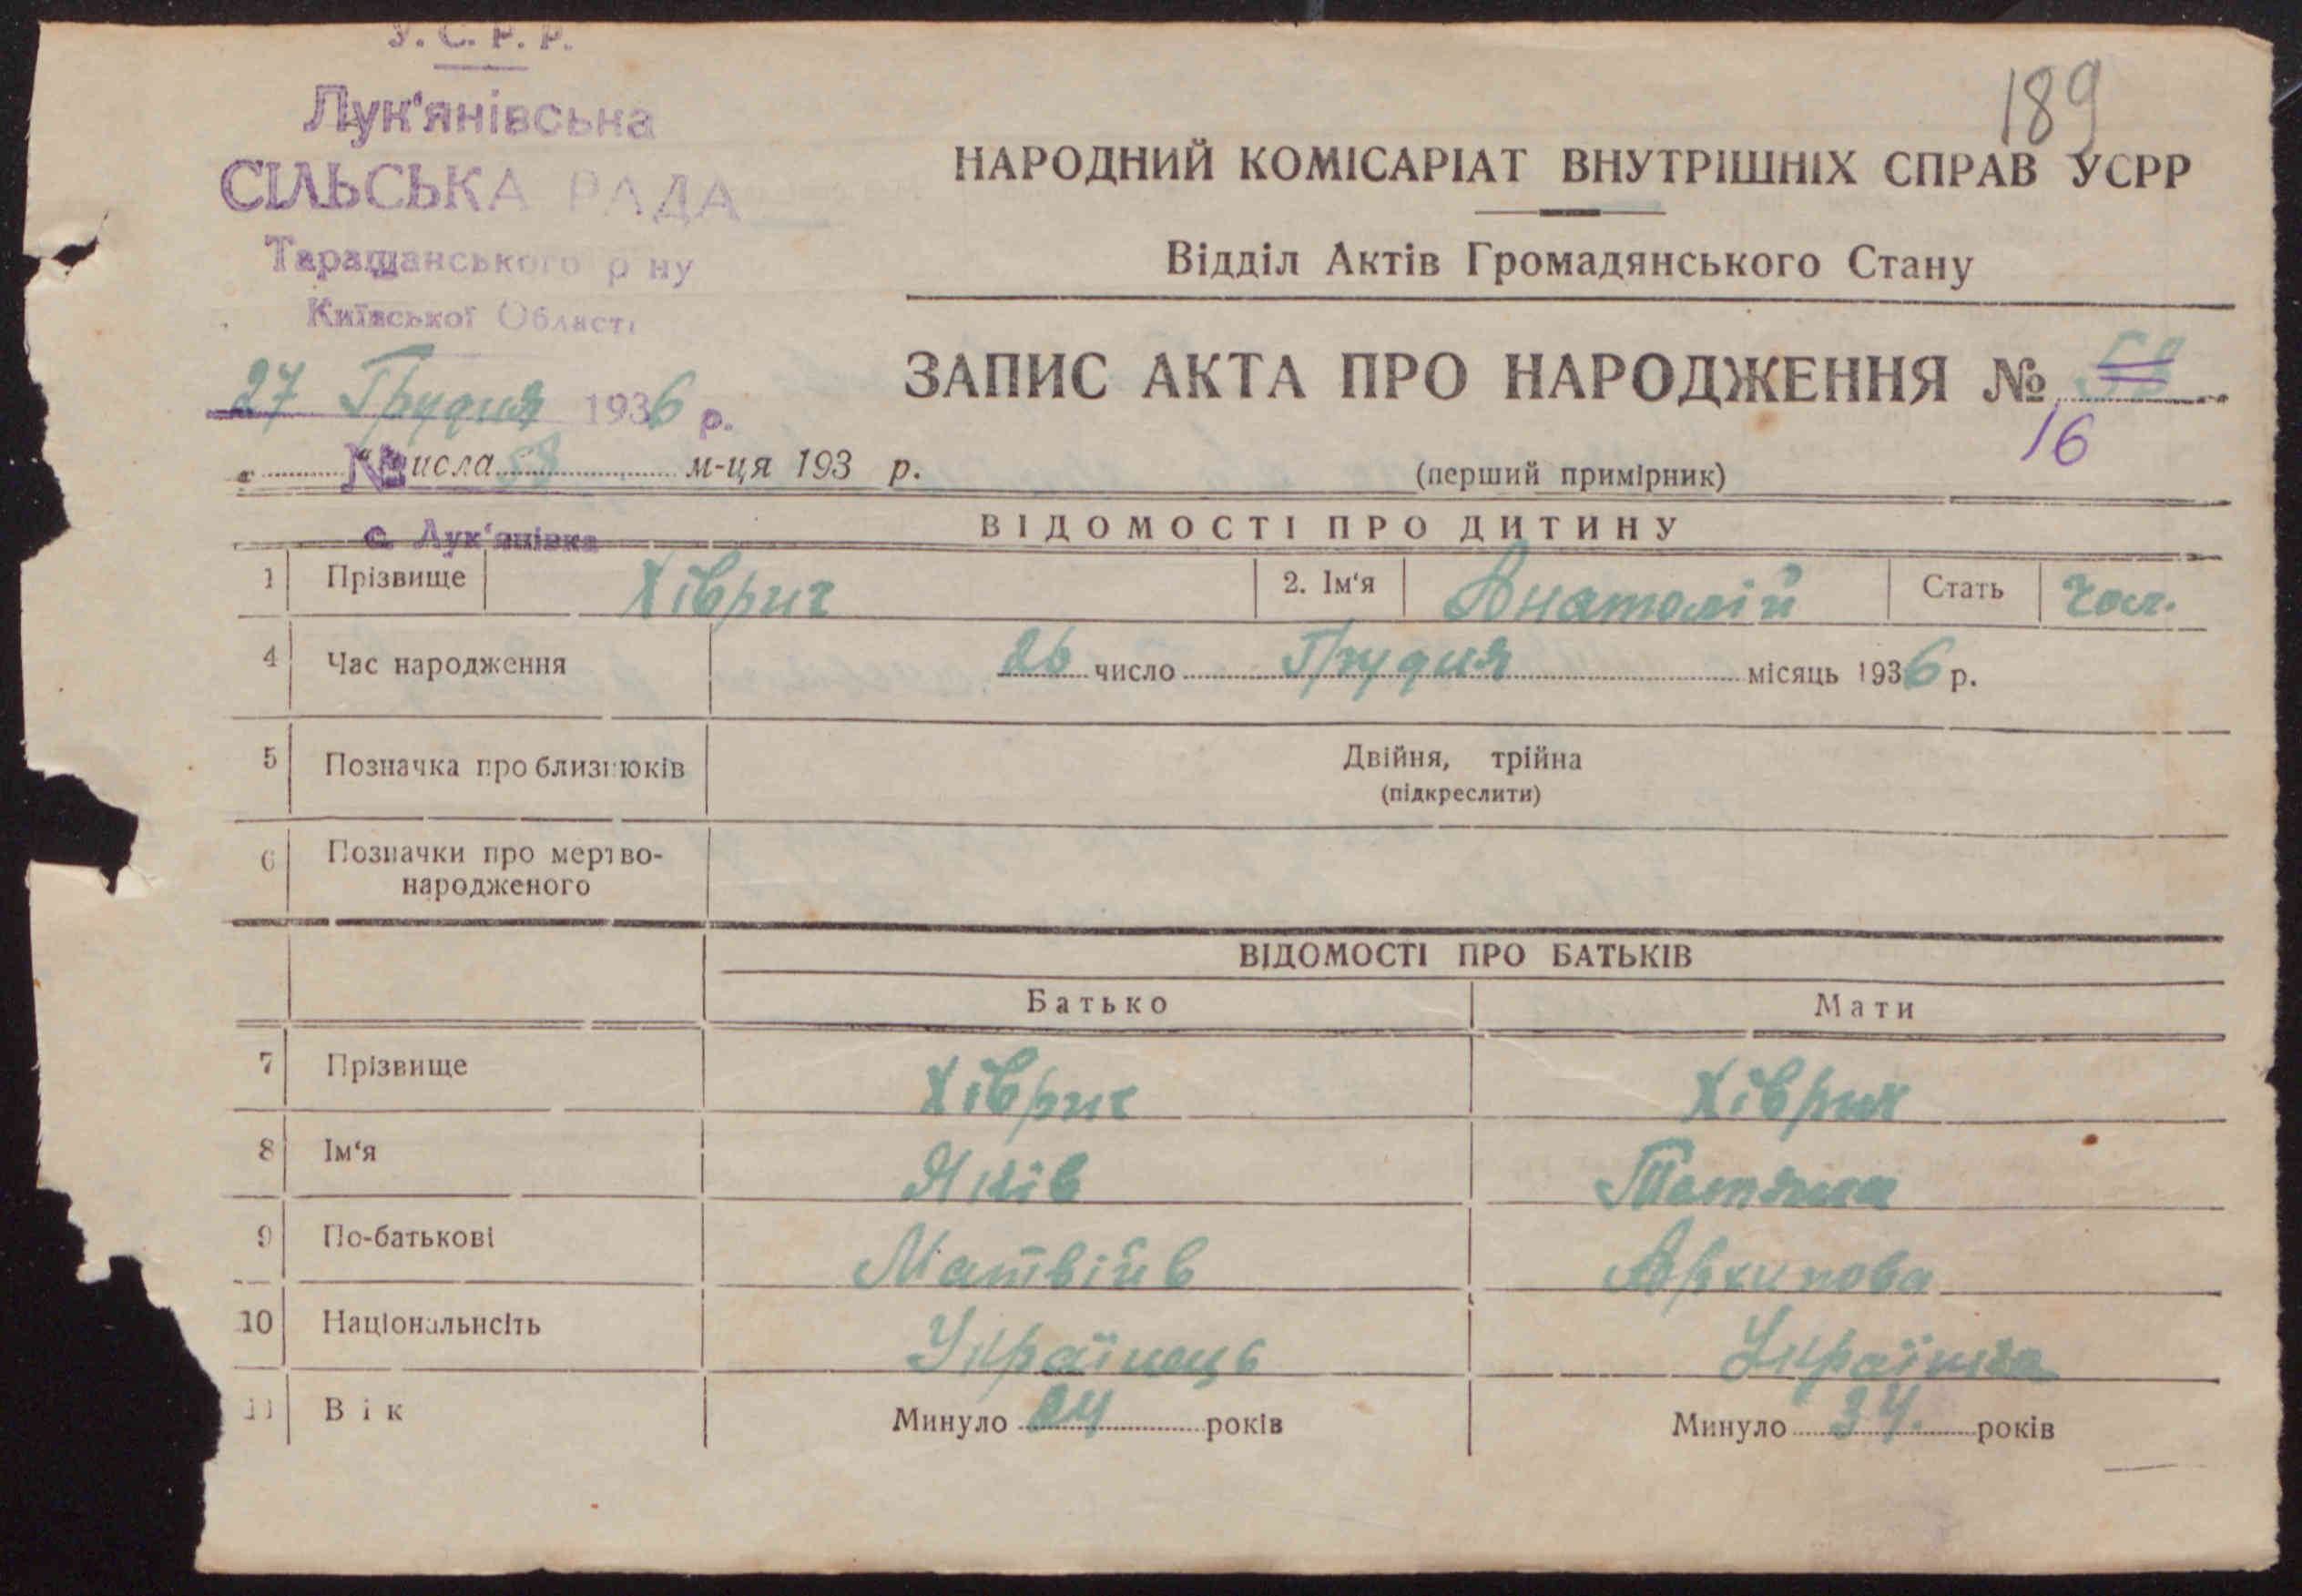 У.С.Р.Р.
Лук'янівська
СІЛЬСЬКА РАДА
Таращанського р ну
Київської Області
27 Грудня 1936 р.
№ 58
числа м-ця 193 р.
с. Лук'янівка
189
НАРОДНИЙ КОМІСАРІАТ ВНУТРІШНІХ СПРАВ УСРР
Відділ Актів Громадянського Стану
ЗАПИС АКТА ПРО НАРОДЖЕННЯ № 58
16
(перший примірник)
ВІДОМОСТІ ПРО ДИТИНУ
1 Прізвище Хіврич 2. Ім'я Анатолій Стать Чол.
4 Час народження 26 число Грудня місяць 1936 р.
5 Позначка про близнюків Двійня, трійна
(підкреслити)
6 Позначки про мертво-
народженого
ВІДОМОСТІ ПРО БАТЬКІВ
Батько Мати
7 Прізвище Хіврич Хіврич
8 Ім'я Яків Татяна
9 По-батькові Матвіїв Архипова
10 Національнсіть Українець Українка
11 Вік Минуло років Минуло 34. років